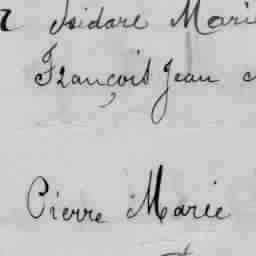 Isidore Marie
François Jean
Pierre Marie